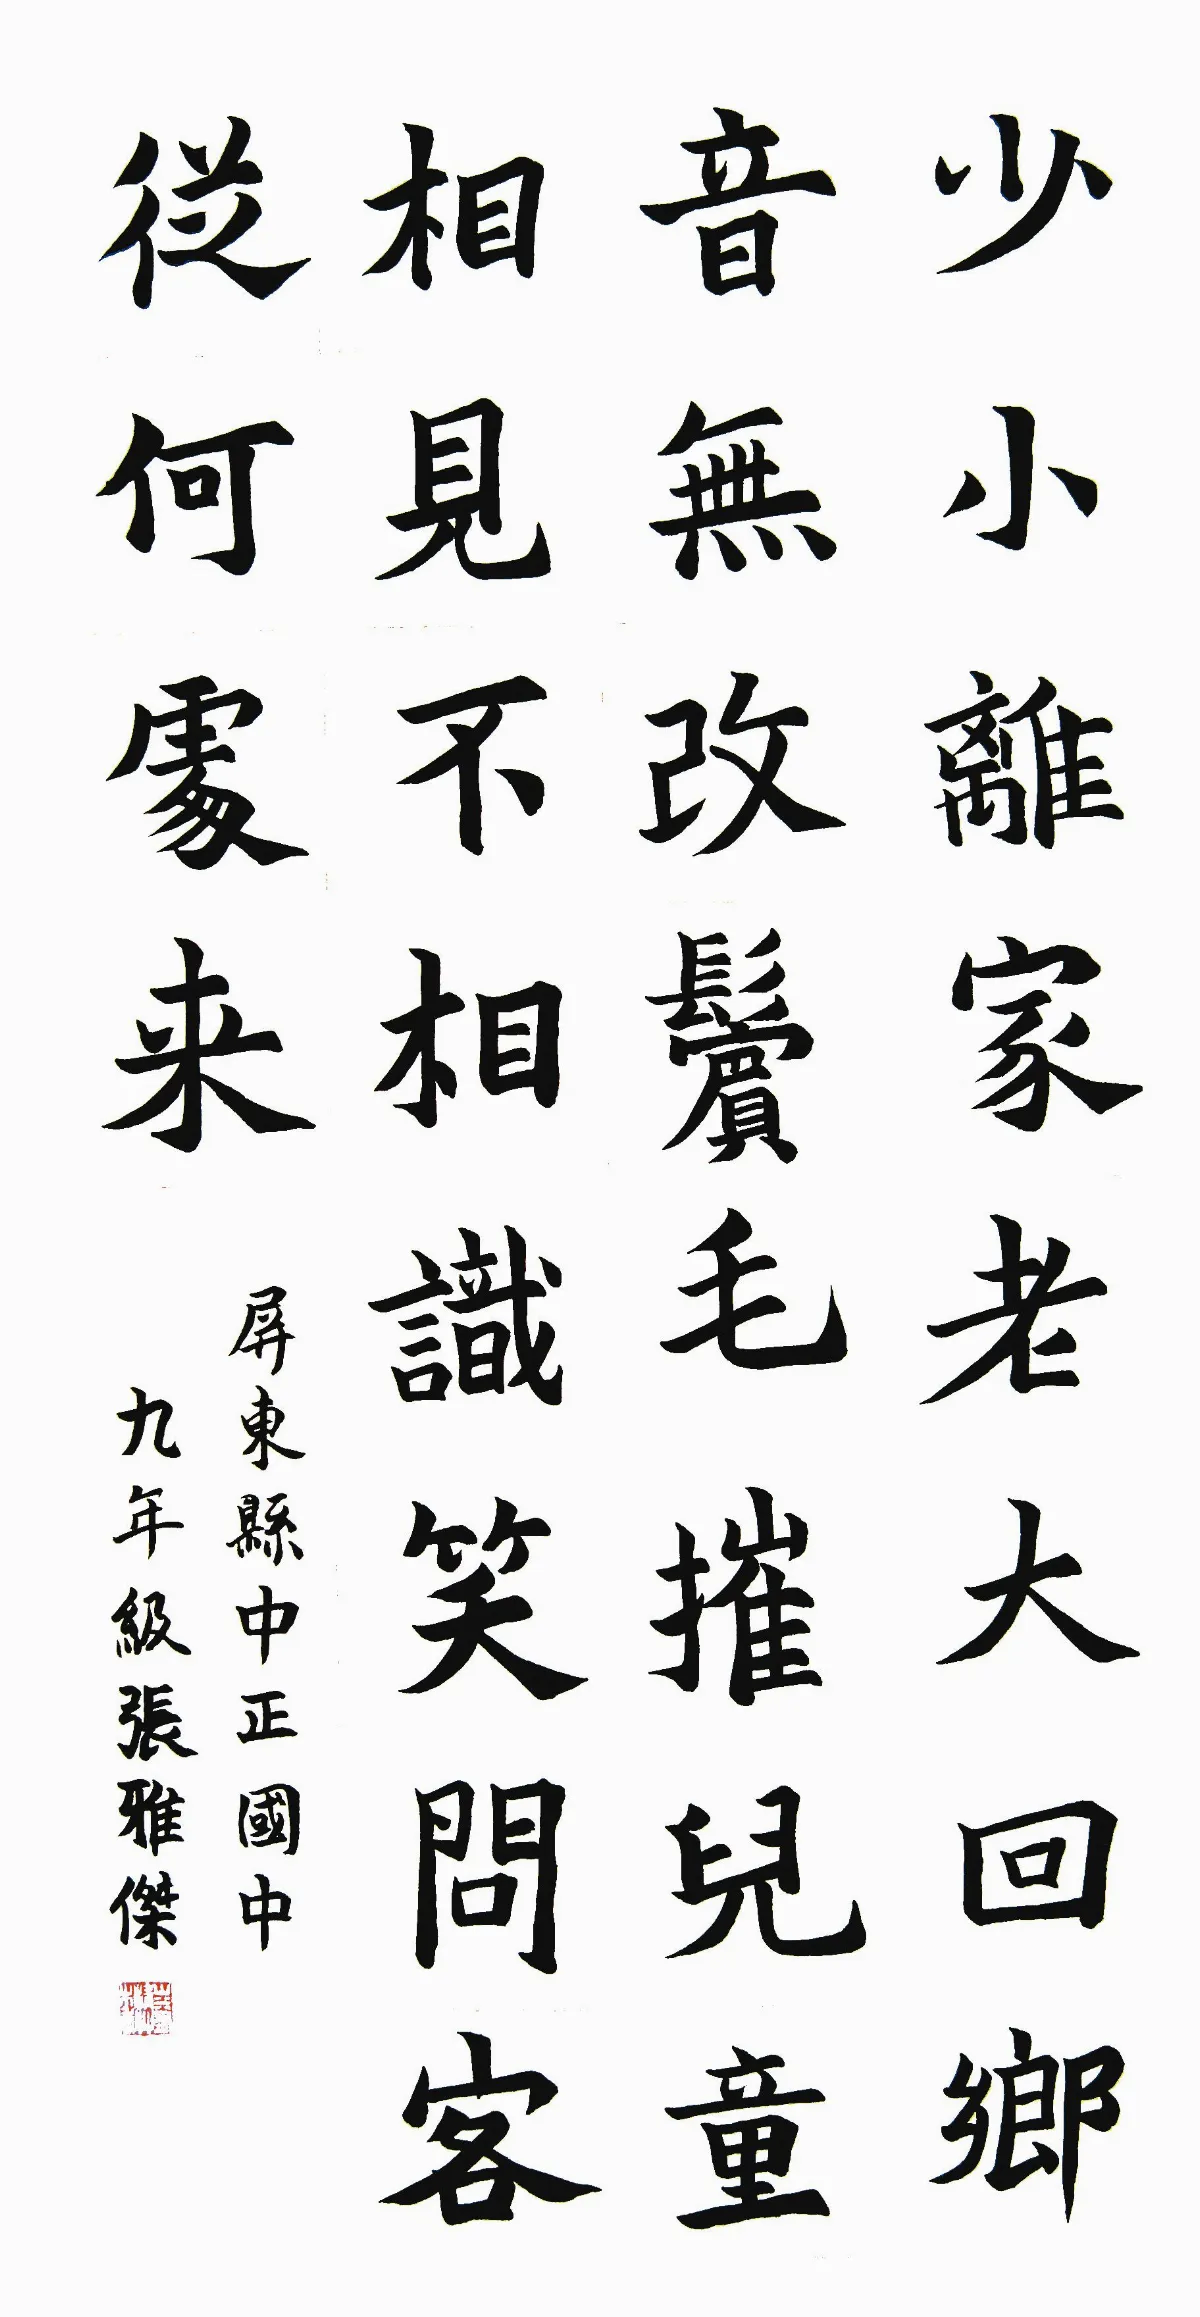 少小離家老大回鄉
音無改鬢毛摧兒童
相見不相識笑問客
従何處来
屏東縣中正國中
九年級張雅傑